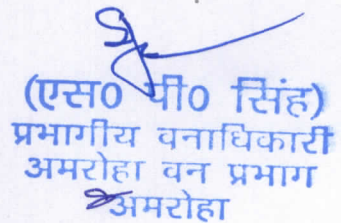 (एस0 पी0 सिंह)
प्रभागीय वनाधिकारी
अमरोहा वन प्रभाग
अमरोहा